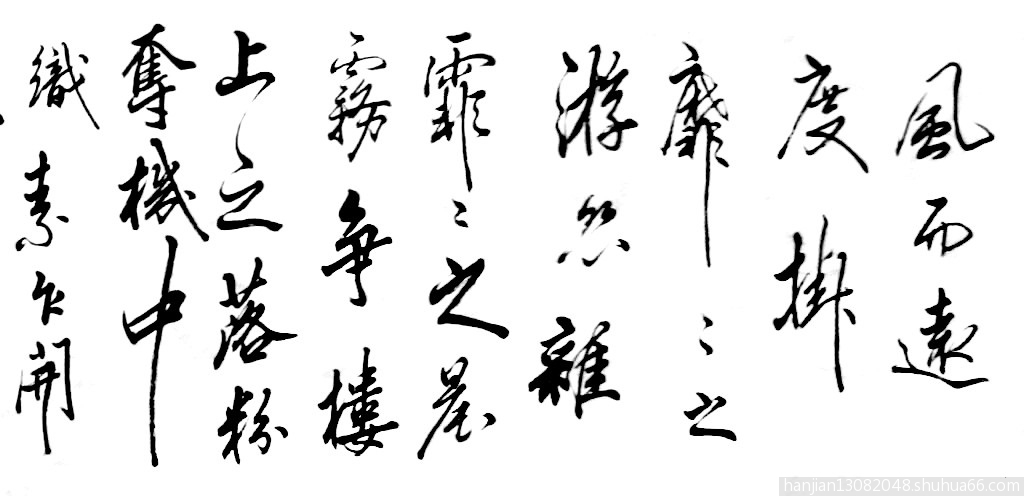 風而遠
度掛
靡〻之
游絲雜
霏〻之晨
霧爭樓
上之落粉
奪機中
織素乍開
hanjian13082048.shuhua66.com